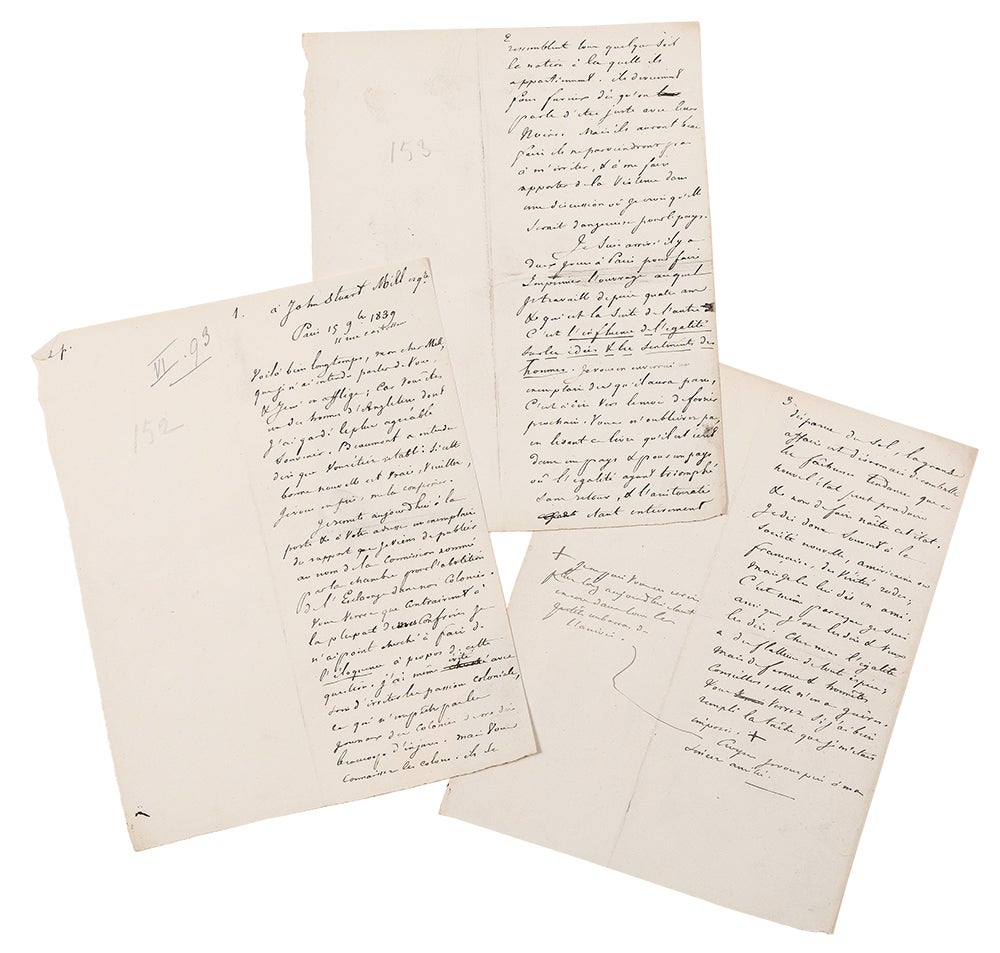 1. à John Stuart Mill esqre
Paris 15 9bre 1839
VI. 93
152
Voilà bien longtemps, mon cher Mill,
que je n'ai entendu parler de vous,
& je m'en afflige; car vous êtes
un des hommes d'Angleterre dont
j'ai gardé le plus agréable
souvenir. Beaumont a entendu
dire que vous étiez rétabli: si cette
bonne nouvelle est vraie, veuillez,
je vous en prie, me la confirmer.
Je remets aujourd'hui à la
poste & à votre adresse un exemplaire
du rapport que je viens de publier
au nom de la Commission nommée
par la chambre pour l'abolition
de l'Esclavage dans nos Colonies.
Vous verrez que contrairement à
la plupart de mes Confrères je
n'ai point cherché à faire de
l'éloquence à propos de cette
question. J'ai même évité avec
soin d'irriter les passions coloniales,
ce qui n'empêche pas les
journaux des colonies de me dire
beaucoup d'injures. Mais vous
connaissez les colons: ils se
2
ressemblent tous quelque soit
la nation à la quelle ils
appartiennent. ils deviennent
fous furieux dès qu'on
parle d'être juste avec leurs
Noirs. Mais ils auront beau
faire ils ne parviendront pas
à m'irriter, & à me faire
apporter de la violence dans
une discussion où je crois qu'elle
serait dangereuse pour le pays.
153
Je suis arrivé il y a
deux jours à Paris pour faire
imprimer l'ouvrage auquel
je travaille depuis quatre ans
& qui est la suite de l'autre
C'est l'influence de l'égalité
sur les idées & les sentiments des
hommes. Je vous en enverrai un
exemplaire dès qu'il aura paru,
C'est à dire vers le mois de février
prochain. Vous n'oublierez pas
en lisant ce livre qu'il est écrit
dans un pays & pour un pays
où l'égalité ayant triomphé
sans retour, & l'aristocratie
étant entièrement
3.
disparue du sol, la grande
affaire est désormais de combattre
les fâcheuses tendances que ce
nouvel état peut produire
& non de faire naître cet état.
Je dis donc souvent à la
société nouvelle, américaine ou
française, des vérités rudes;
mais je les lui dis en ami.
C'est même parce que je suis
ami que j'ose les dire & veux
les dire. Chez nous l'égalité
a des flatteurs de toute espèce;
mais de fermes & honnêtes
Conseillers, elle n'en a guères.
Vous verrez si j'ai bien
rempli la tâche que je m'étais
imposée. +
Croyez je vous prie à ma
sincère amitié.
+
Je ne puis vous en écrire
plus long aujourd'hui étant
encore dans tous les
petits embarras de
l'arrivée.